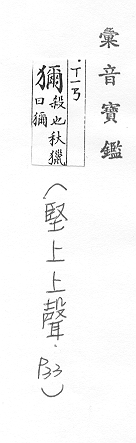 彙音寶鑑
ㄒㄧㄢ
獮 殺也秋獵
曰獮
(堅上上聲.P33)